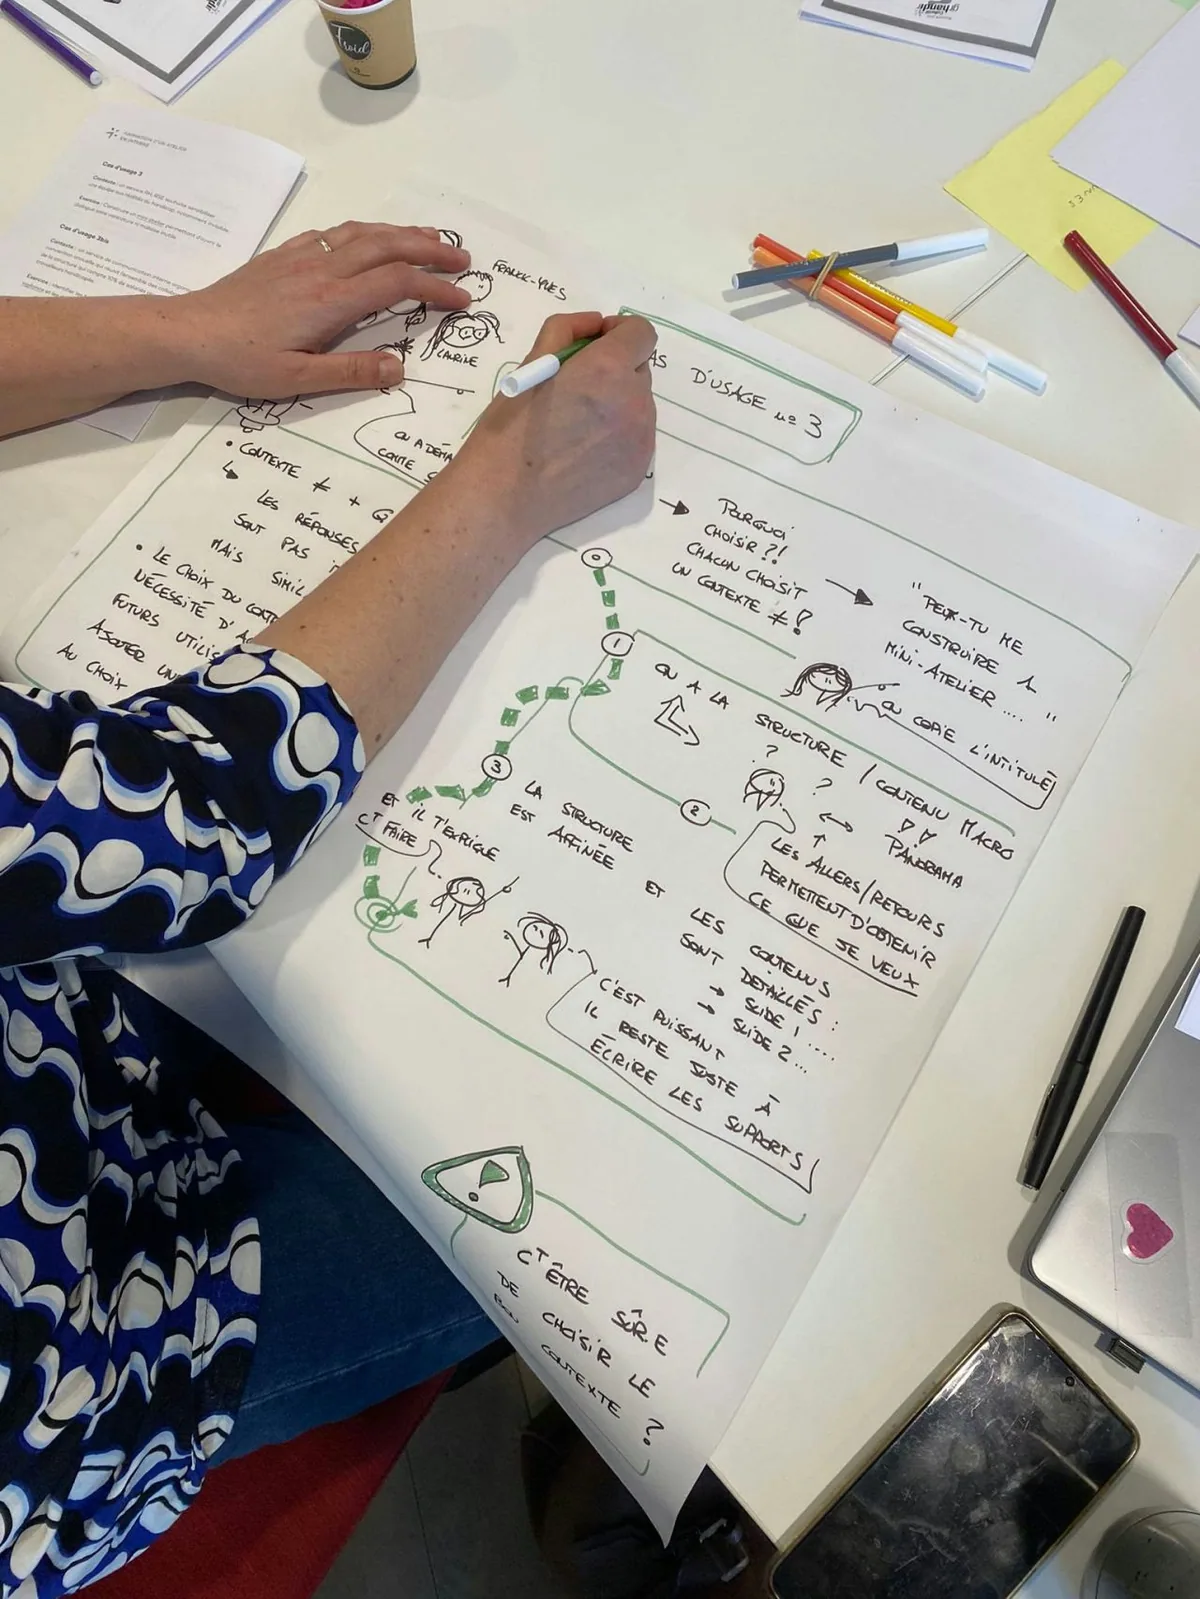 Froid
FORMATION D'UN ATELIER
EN INTERNE
Cas d'usage 3
Contexte : un service RH, RSE souhaite sensibiliser
Cas d'usage 3bis
FRANCK-YVES
LAURINE
AS D'USAGE n° 3
• CONTEXTE ≠ +
↳ LES RÉPONSES
SONT PAS
MAIS SIMIL
• LE CHOIX DU CONT
NÉCESSITÉ D'A
FUTURS UTILIS
AJOUTER UN
AU CHOIX
ON A DÉMA
→ POURQUOI
CHOISIR ?!
CHACUN CHOISIT
UN CONTEXTE ≠ !
→ " PEUX-TU ME
CONSTRUIRE 1
MINI-ATELIER .... "
ON COPIE L'INTITULÉ
0
1
ON A LA STRUCTURE / CONTENU MACRO
? ? ↔ PANORAMA
2
LES ALLERS/RETOURS
PERMETTENT D'OBTENIR
CE QUE JE VEUX
3
LA STRUCTURE
EST AFFINÉE
ET LES CONTENUS
SONT DÉTAILLÉS :
→ SLIDE 1 ....
→ SLIDE 2 ...
ET IL T'EXPLIQUE
CT FAIRE
C'EST PUISSANT
IL RESTE JUSTE À
ÉCRIRE LES SUPPORTS
!
CT ÊTRE SÛR.E
DE CHOISIR LE
BON CONTEXTE ?